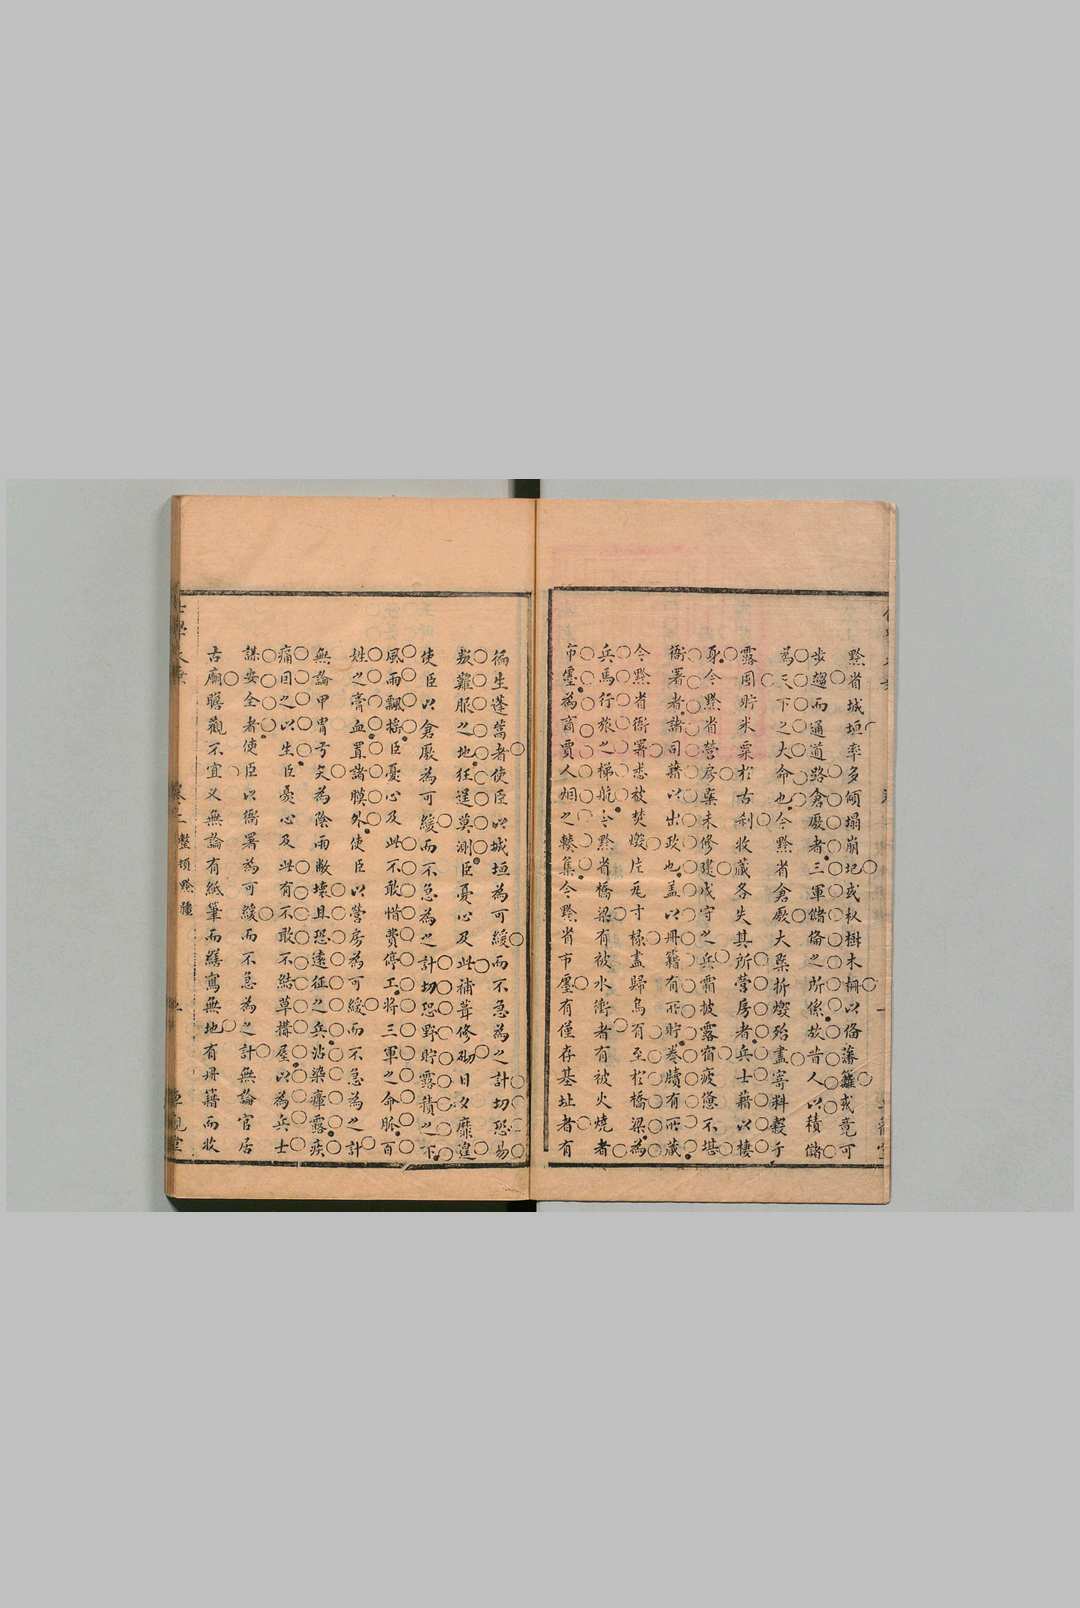 黔省城垣率多傾塌崩圮或杈樹木柵以偹藩籬或竟可
步趨而通道路倉廒者三軍儲偹之所係故昔人以積儲
為天下之大命也今黔省倉廒大槩折燬殆盡寄料穀于
露囤貯米粟於古刹收藏各失其所營房者兵士藉以棲
身今黔省營房槩未修建戍守之兵霜披露宿疲憊不堪
衙署者諸司藉以出政也蓋以冊籍有所貯卷牘有所藏
今黔省衙署悉被焚燬片瓦寸椽盡歸烏有至於橋梁為
兵馬行旅之梯航今黔省橋梁有被水衝者有被火燒者
市廛為商賈人烟之輳集今黔省市廛有僅存基址者有
徧生蓬蒿者使臣以城垣為可緩而不急為之計切恐易
叛難服之地狂逞莫測臣憂心及此補葺修砌日夕靡遑
使臣以倉廒為可緩而不急為之計切恐野貯露積之下
風雨飄搖臣憂心及此不敢惜費停工將三軍之命脉百
姓之膏血置諸膜外使臣以營房為可緩而不急為之計
無論甲冑弓矢為陰雨敝壞且恐遠征之兵沾染瘴露疾
痛因之以生臣憂心及此有不敢不結草搆屋以為兵士
謀安全者使臣以衙署為可緩而不急為之計無論官居
古廟瞻觀不宜又無論有紙筆而繕寫無地有冊籍而收